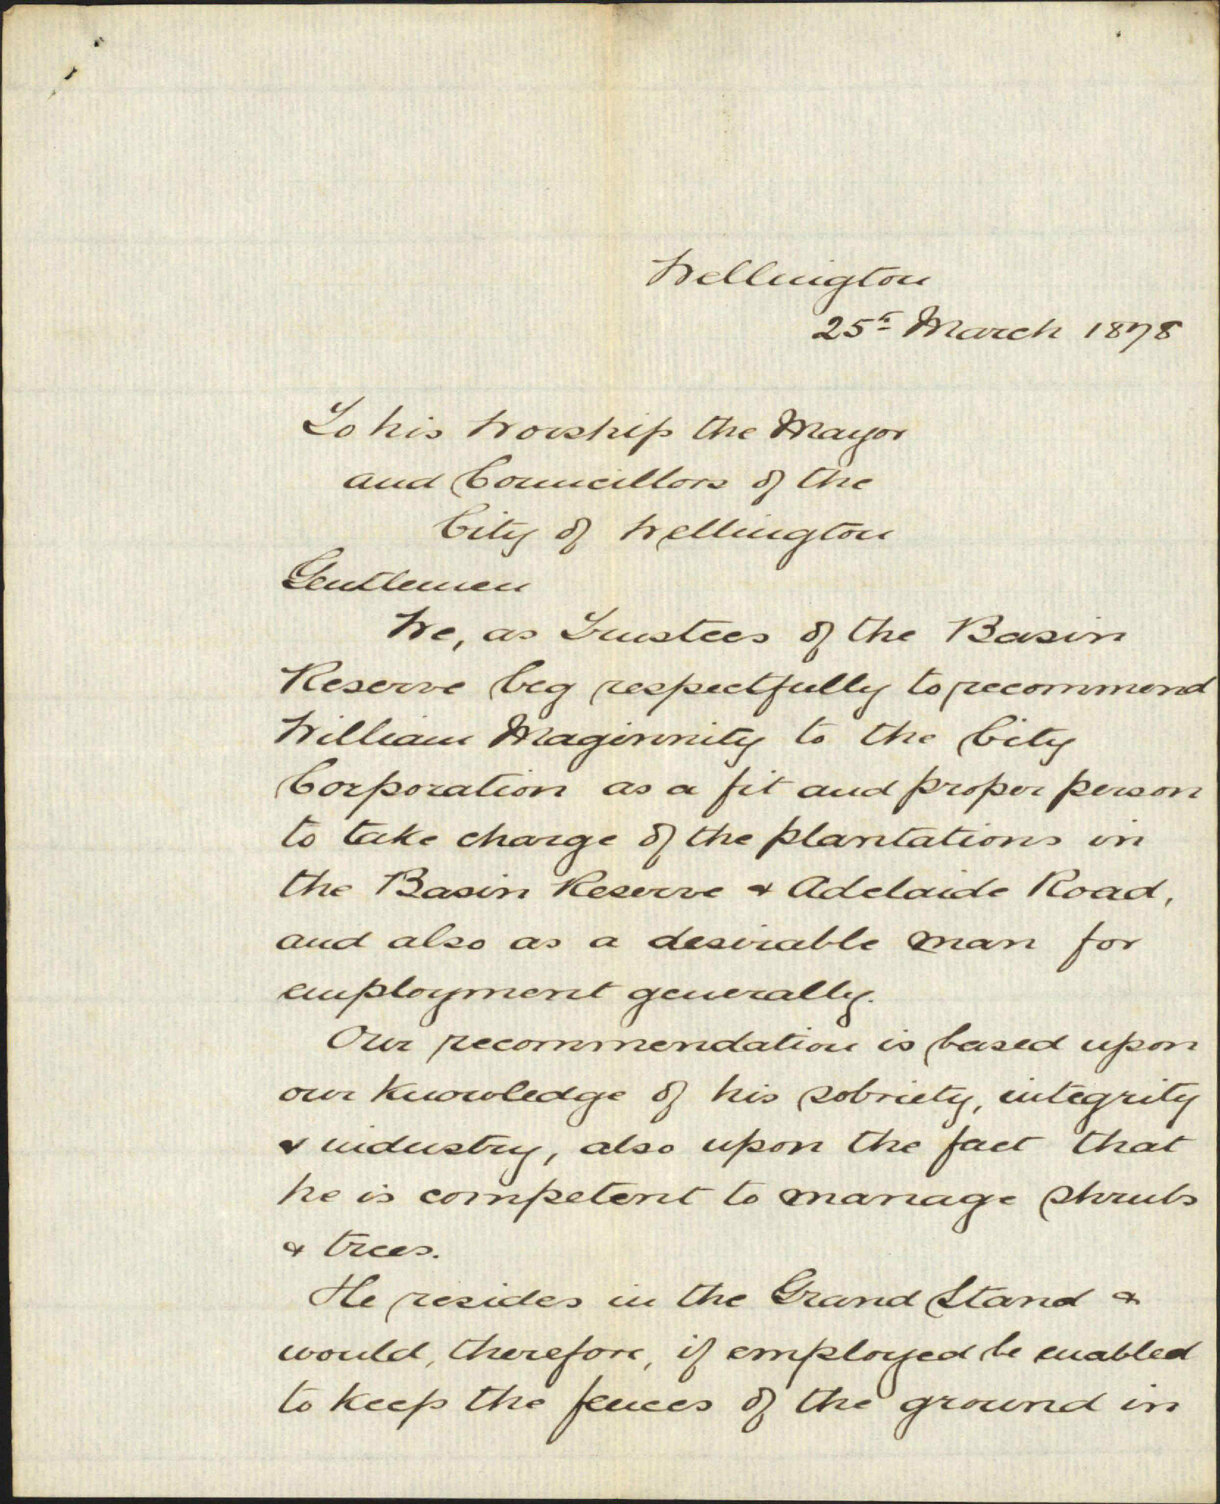 Wellington
25th March 1878
To his Worship the Mayor
and Councillors of the
City of Wellington
Gentlemen
We, as Trustees of the Basin
Reserve beg respectfully to recommend
William Maginnity to the City
Corporation as a fit and proper person
to take charge of the plantations in
the Basin Reserve & Adelaide Road,
and also as a desirable man for
employment generally.
Our recommendation is based upon
our knowledge of his sobriety, integrity
& industry, also upon the fact that
he is competent to manage shrubs
& trees.
He resides in the Grand Stand &
would, therefore, if employed be enabled
to keep the fences of the ground in